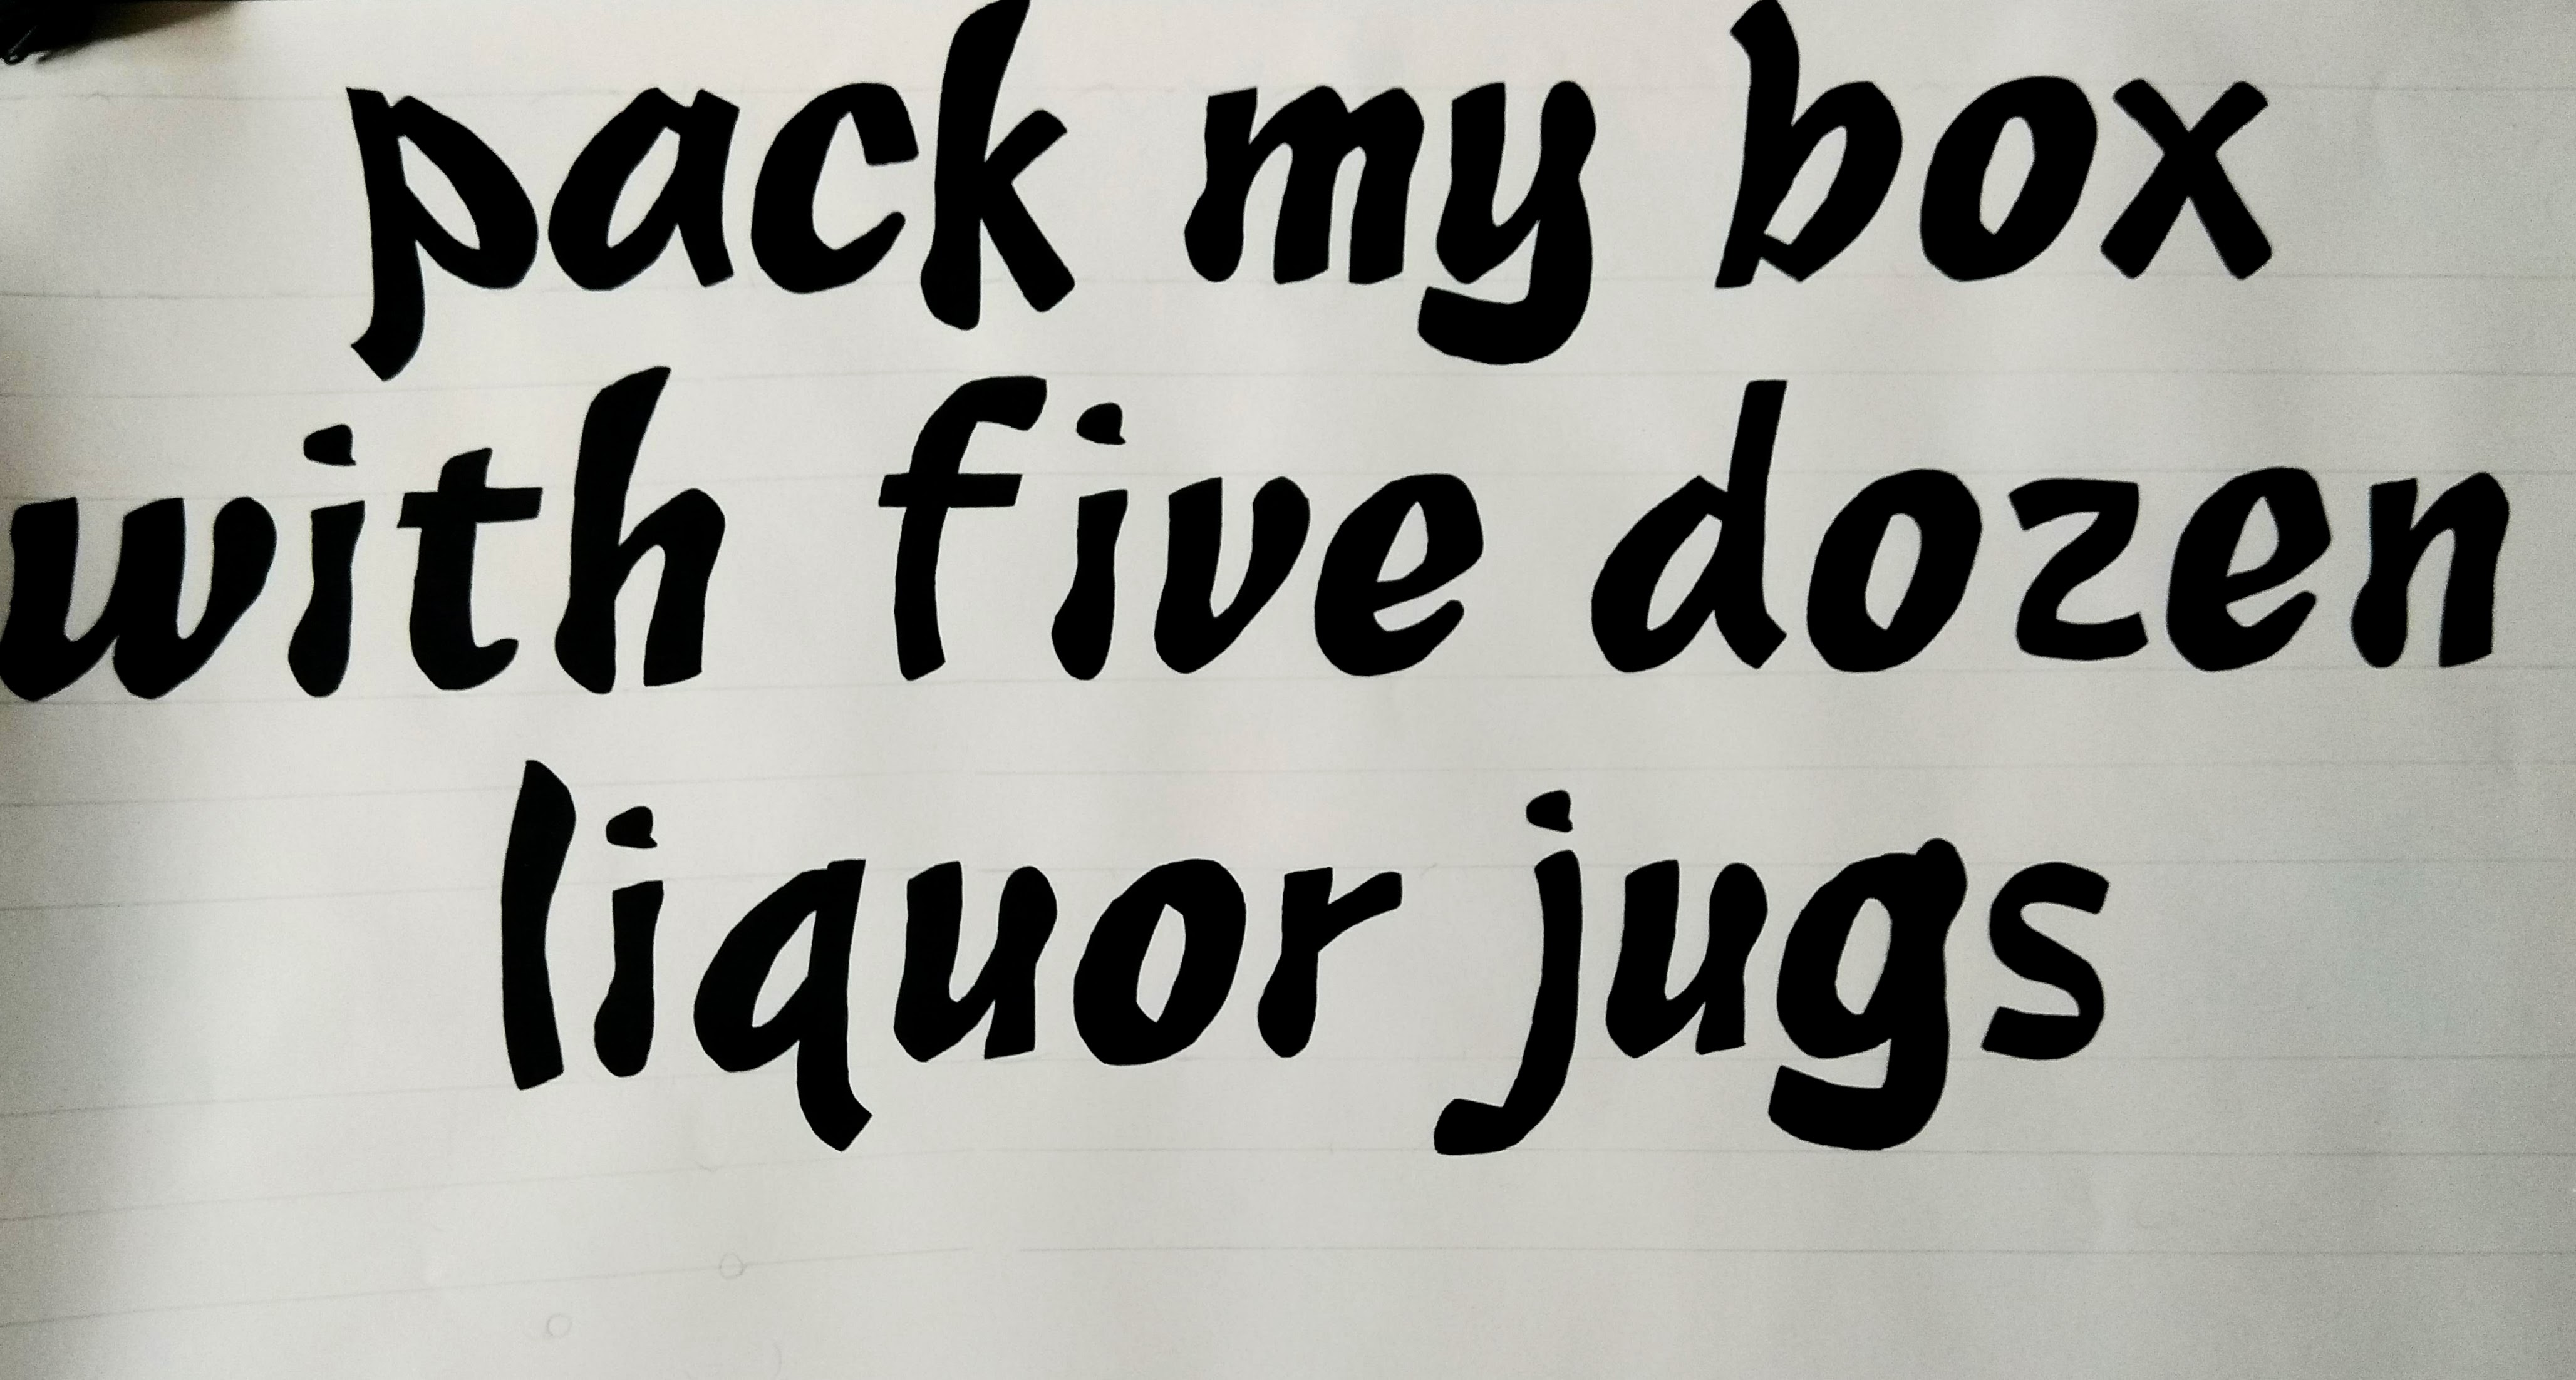 pack my box
with five dozen
liquor jugs